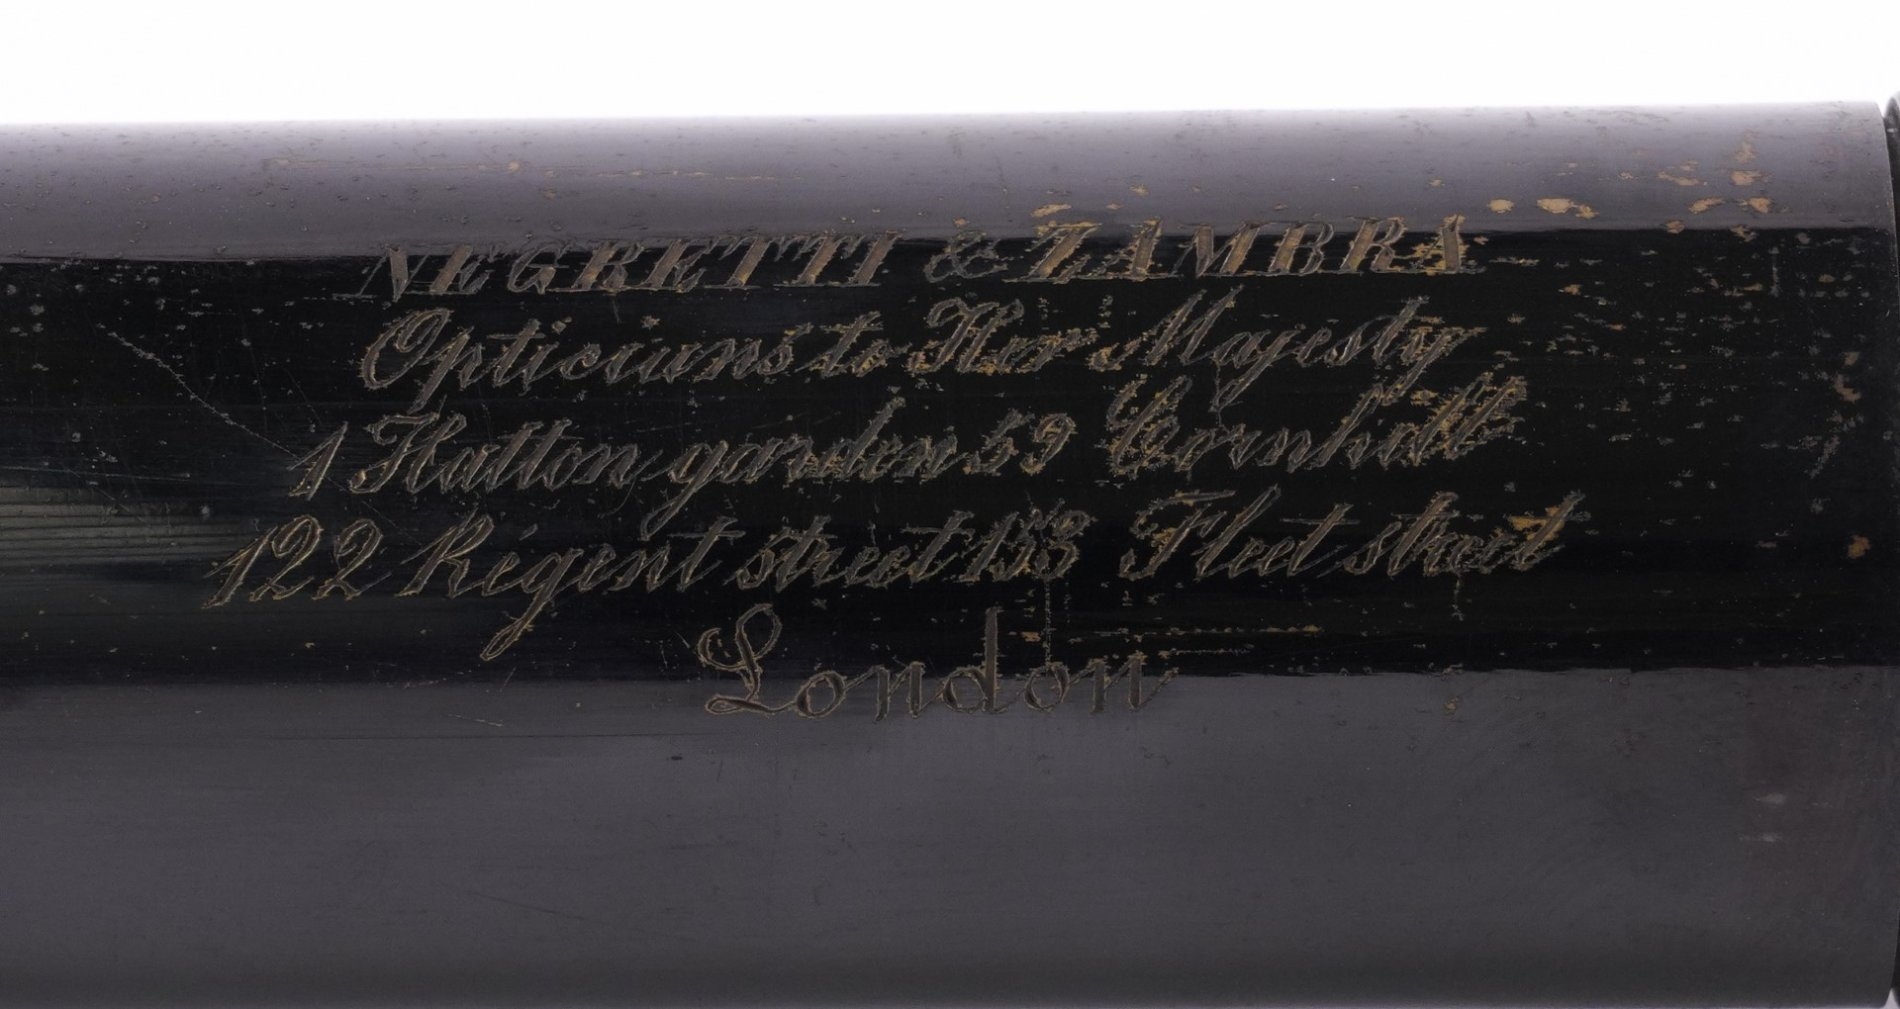 NEGRETTI & ZAMBRA
Opticians to Her Majesty
1 Hatton garden 59 Cornhill
122 Régent street 153 Fleet street
London